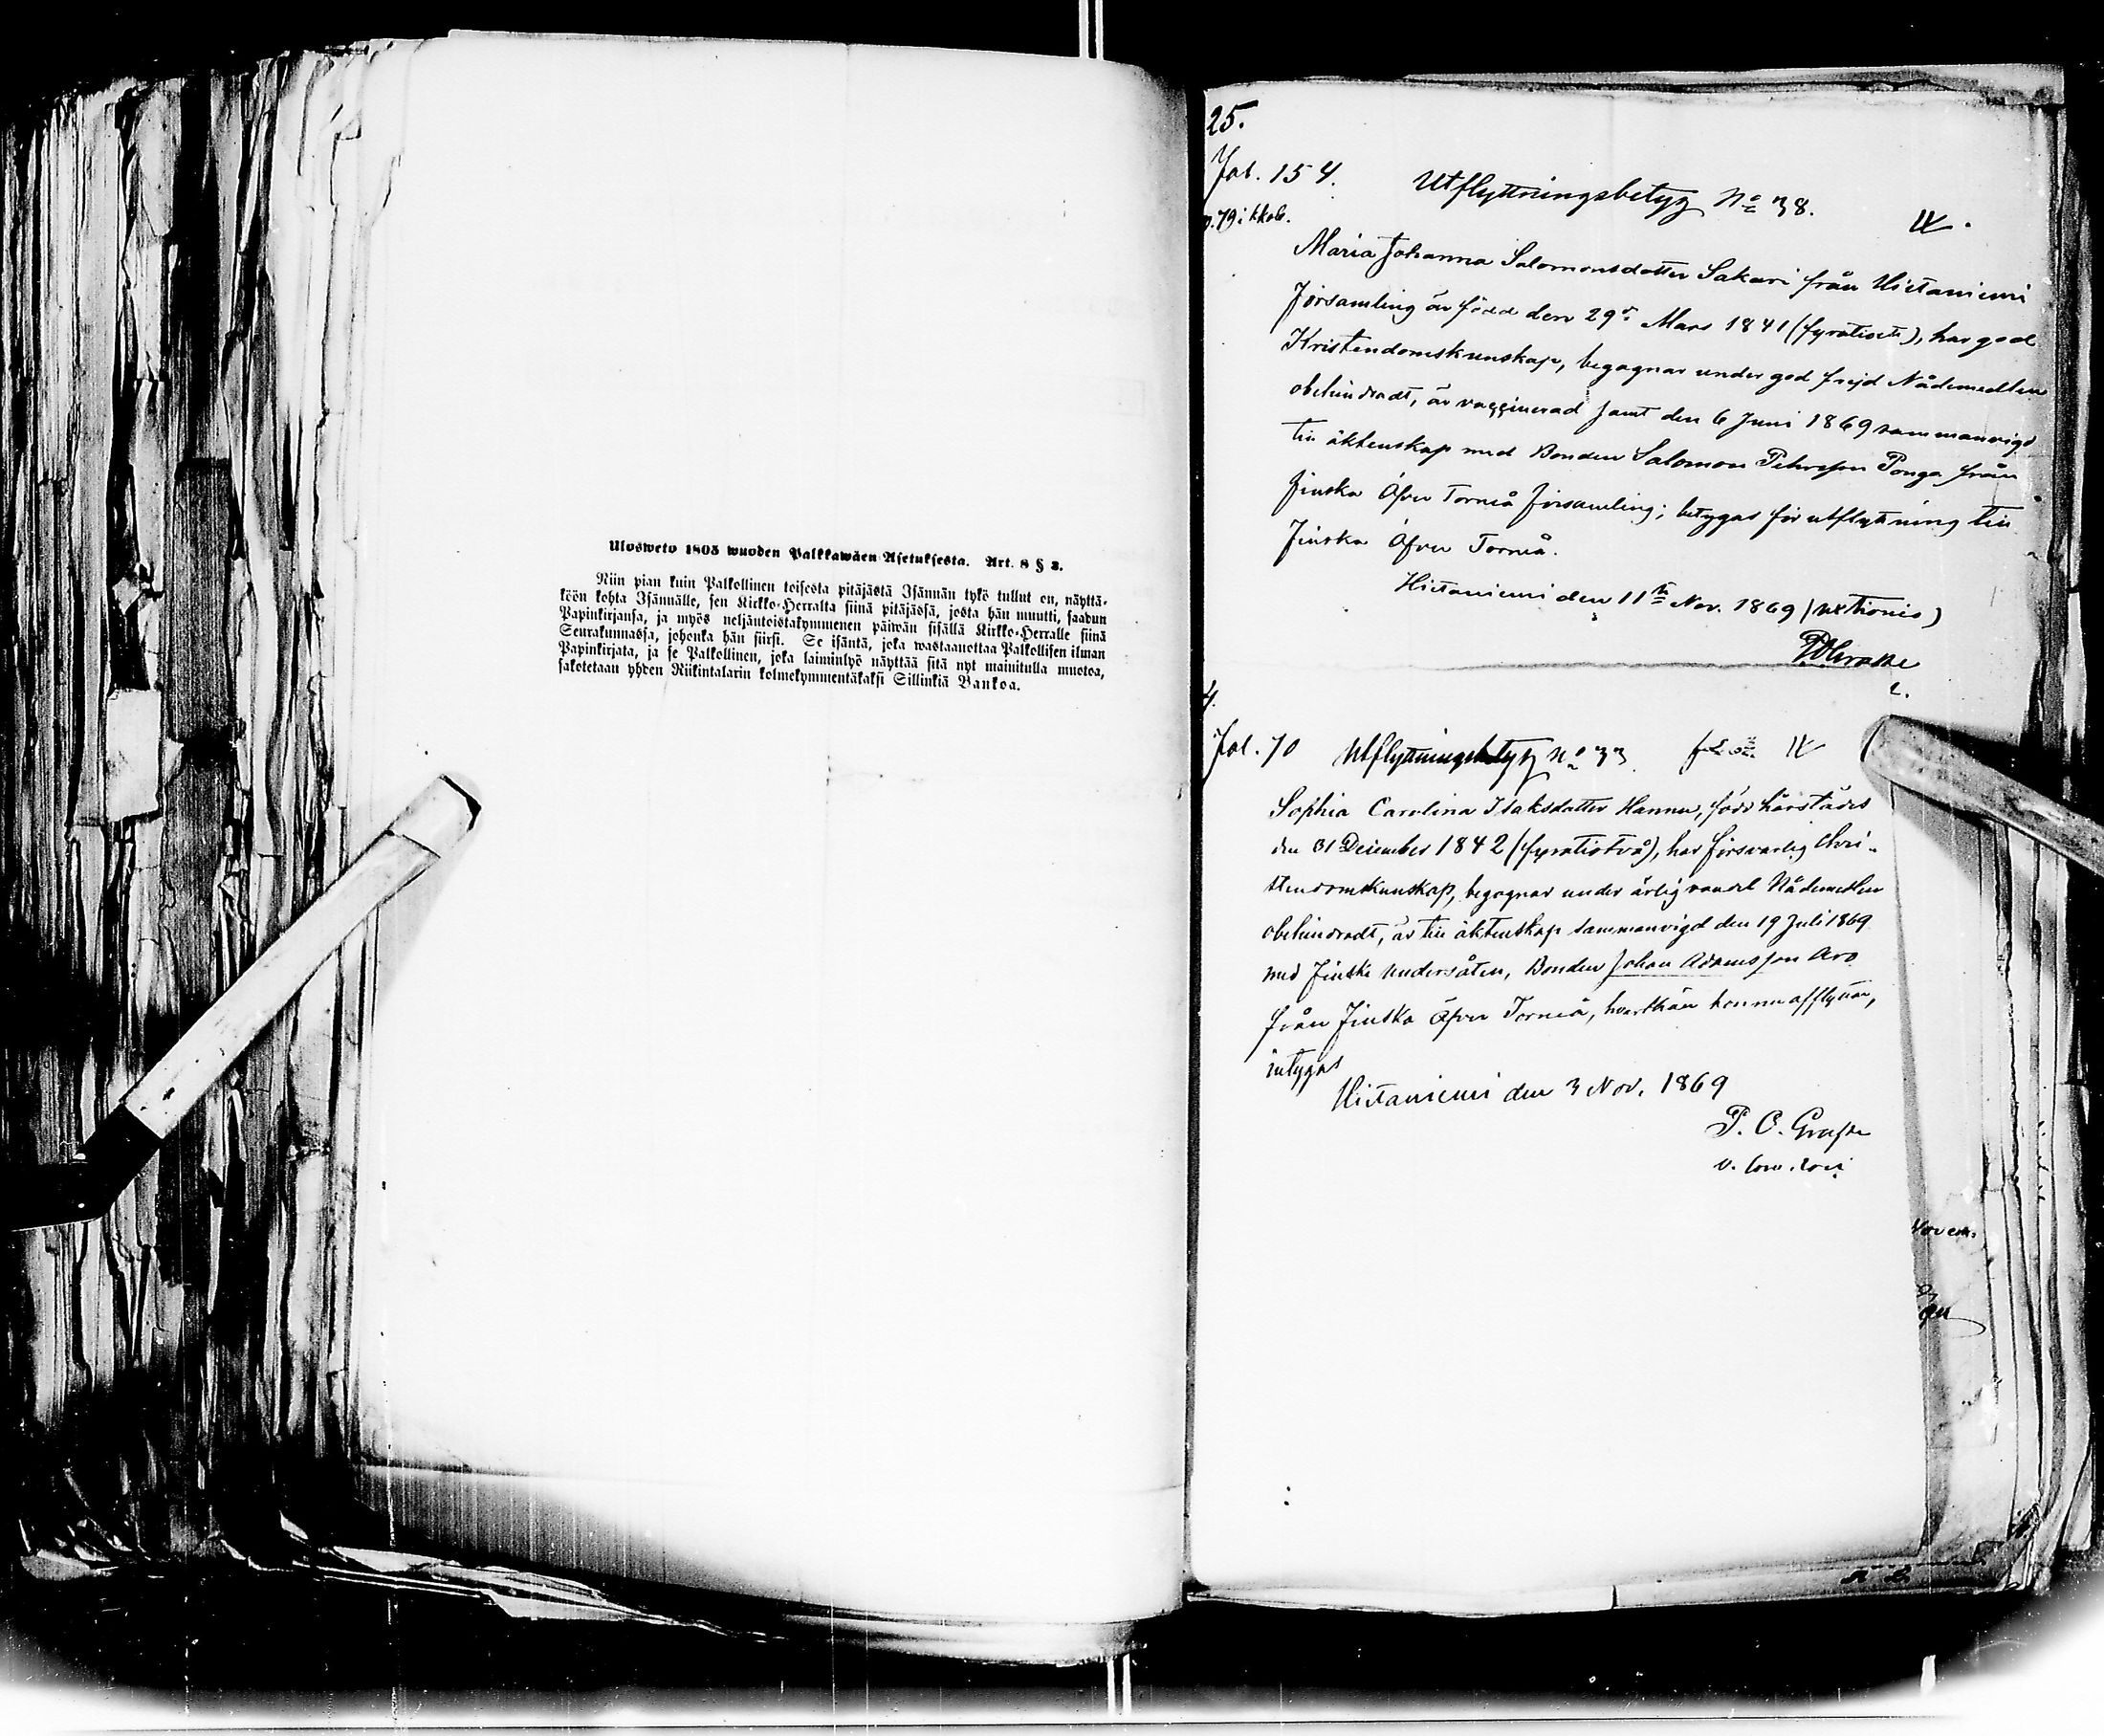 Ulosweto 1805 wuoden Palkkawäen Asetuksesta. Art. 8 § 3.
Niin pian kuin Palkollinen toisesta pitäjästä Isännän tykö tullut on, näyttä-
köön kohta Isännälle, sen Kirkko-Herralta siinä pitäjässä, josta hän muutti, saadun
Papinkirjansa, ja myös neljäntoistakymmenen päiwän sisällä Kirkko-Herralle siinä
Seurakunnassa, johonka hän siirsi. Se isäntä, joka wastaanottaa Palkollisen ilman
Papinkirjata, ja se Palkollinen, joka laiminlyö näyttää sitä nyt mainitulla muotoa,
sakotetaan yhden Riikintalarin kolmekymmentäkaksi Sillinkiä Bankoa.
25.
Fol. 154.
p. 79 i kkob.
Utflyttningsbetyg No 38.
Maria Johanna Salomonsdotter Sakari från Hietaniemi
Församling är född den 29de Mars 1841 (fyratioett), har god
Kristendomskunskap, begagnar under god frejd Nådemedlen
obehindradt, är vaccinerad samt den 6 Juni 1869 sammanvigd
till äktenskap med Bonden Salomon Pehrsson Ponga från
Finska Öfver Torneå församling; betygas för utflyttning till
Finska Öfver Torneå.
Hietaniemi den 11te Nov. 1869
4.
Fol. 70 Utflyttningsbetyg No 33
Sophia Carolina Isaksdotter Hannu, född härstädes
den 31 December 1842 (fyratiotvå), har försvarlig Chri-
stendomskunskap, begagnar under ärlig vandel Nådemedlen
obehindradt, är till äktenskap sammanvigd den 19 Juli 1869
med Finske Undersåten, Bonden Johan Adamsson Aro
från Finska Öfver Torneå, hvarthän hon nu afflyttar,
intygas
Hietaniemi den 3 Nov. 1869
P. O. Grape
Novem.